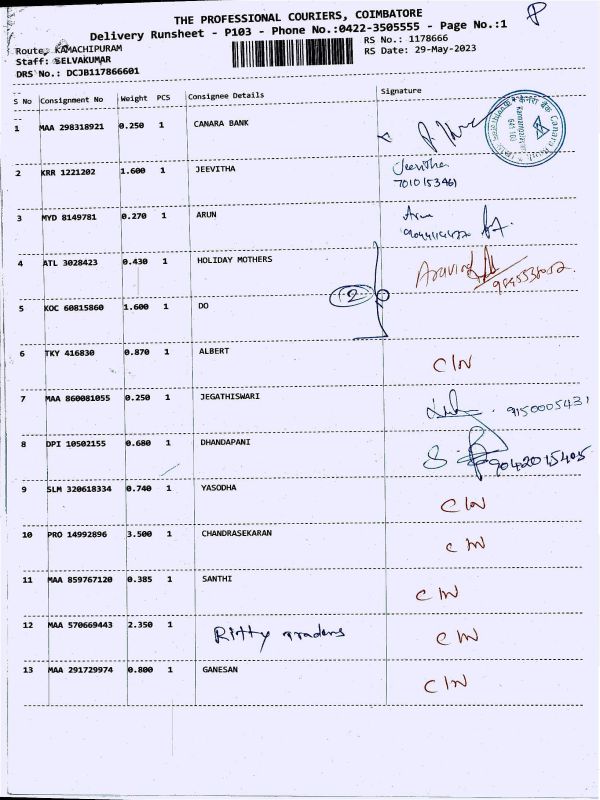 THE PROFESSIONAL COURIERS, COIMBATORE
Delivery Runsheet - P103 - Phone No.:0422-3505555 - Page No.:1
Route: KAMACHIPURAM
RS No.: 1178666
Staff: SELVAKUMAR
RS Date: 29-May-2023
DRS No.: DCJB117866601
S No Consignment No Weight PCS Consignee Details Signature
1 MAA 298318921 0.250 1 CANARA BANK
2 KRR 1221202 1.600 1 JEEVITHA Jeevitha
7010153461
3 MYD 8149781 0.270 1 ARUN Arun
4 ATL 3028423 0.430 1 HOLIDAY MOTHERS Aravind
5 KOC 60815860 1.600 1 DO
2
6 TKY 416830 0.870 1 ALBERT C/N
7 MAA 860081055 0.250 1 JEGATHISWARI 9150005431
8 DPI 10502155 0.680 1 DHANDAPANI 9042015405
9 SLM 320618334 0.740 1 YASODHA C/N
10 PRO 14992896 3.500 1 CHANDRASEKARAN C/N
11 MAA 859767120 0.385 1 SANTHI C/N
12 MAA 570669443 2.350 1 Ritty traders C/N
13 MAA 291729974 0.800 1 GANESAN C/N